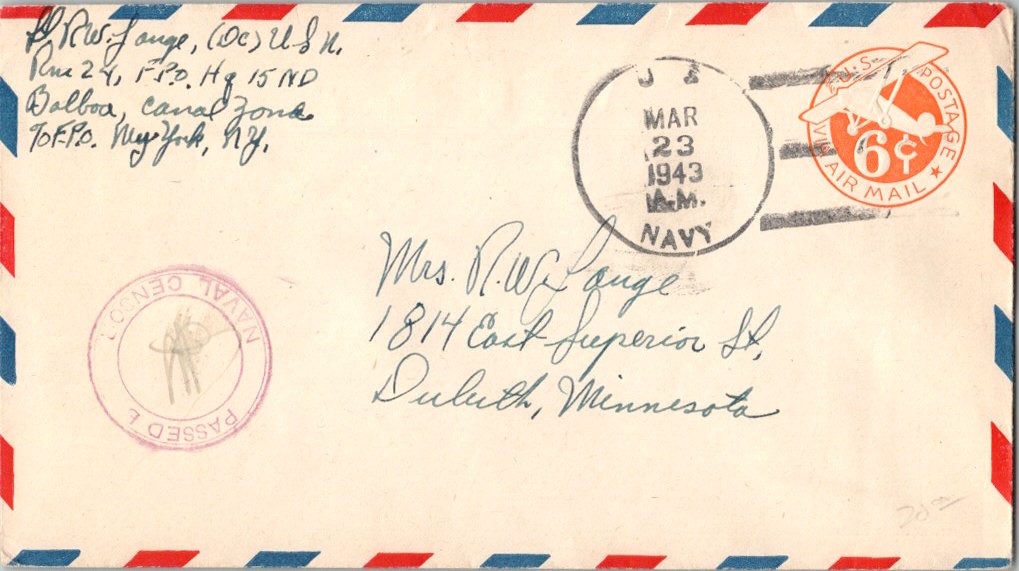 Lt R.W. Lange, (DC) U S N.
Rm 24, F.P.O. Hq 15 ND
Balboa, Canal Zone
℅ F.P.O. New York, N.Y.
U S
MAR
23
1943
A.M.
NAVY
U.S. POSTAGE
6¢
VIA AIR MAIL
Mrs. R.W. Lange
1814 East Superior St,
Duluth, Minnesota
NAVAL CENSOR
PASSED